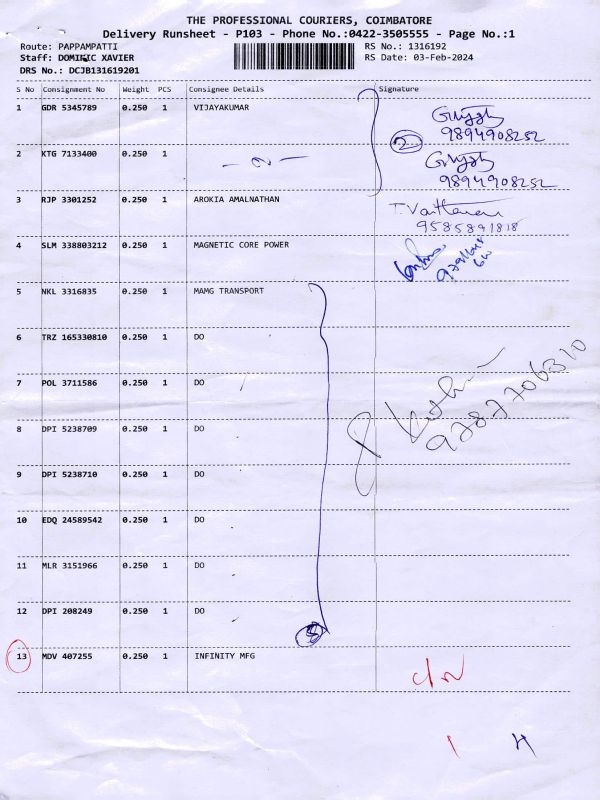 THE PROFESSIONAL COURIERS, COIMBATORE
Delivery Runsheet - P103 - Phone No.:0422-3505555 - Page No.:1
Route: PAPPAMPATTI RS No.: 1316192
Staff: DOMINIC XAVIER RS Date: 03-Feb-2024
DRS No.: DCJB131619201
S No Consignment No Weight PCS Consignee Details Signature
1 GDR 5345789 0.250 1 VIJAYAKUMAR
9894908252
2 KTG 7133400 0.250 1 2
9894908252
3 RJP 3301252 0.250 1 AROKIA AMALNATHAN
9585891818
4 SLM 338803212 0.250 1 MAGNETIC CORE POWER
5 NKL 3316835 0.250 1 MAMG TRANSPORT
6 TRZ 165330810 0.250 1 DO
7 POL 3711586 0.250 1 DO
9787706310
8 DPI 5238709 0.250 1 DO
9 DPI 5238710 0.250 1 DO
10 EDQ 24589542 0.250 1 DO
11 MLR 3151966 0.250 1 DO
12 DPI 208249 0.250 1 DO
8
13 MDV 407255 0.250 1 INFINITY MFG